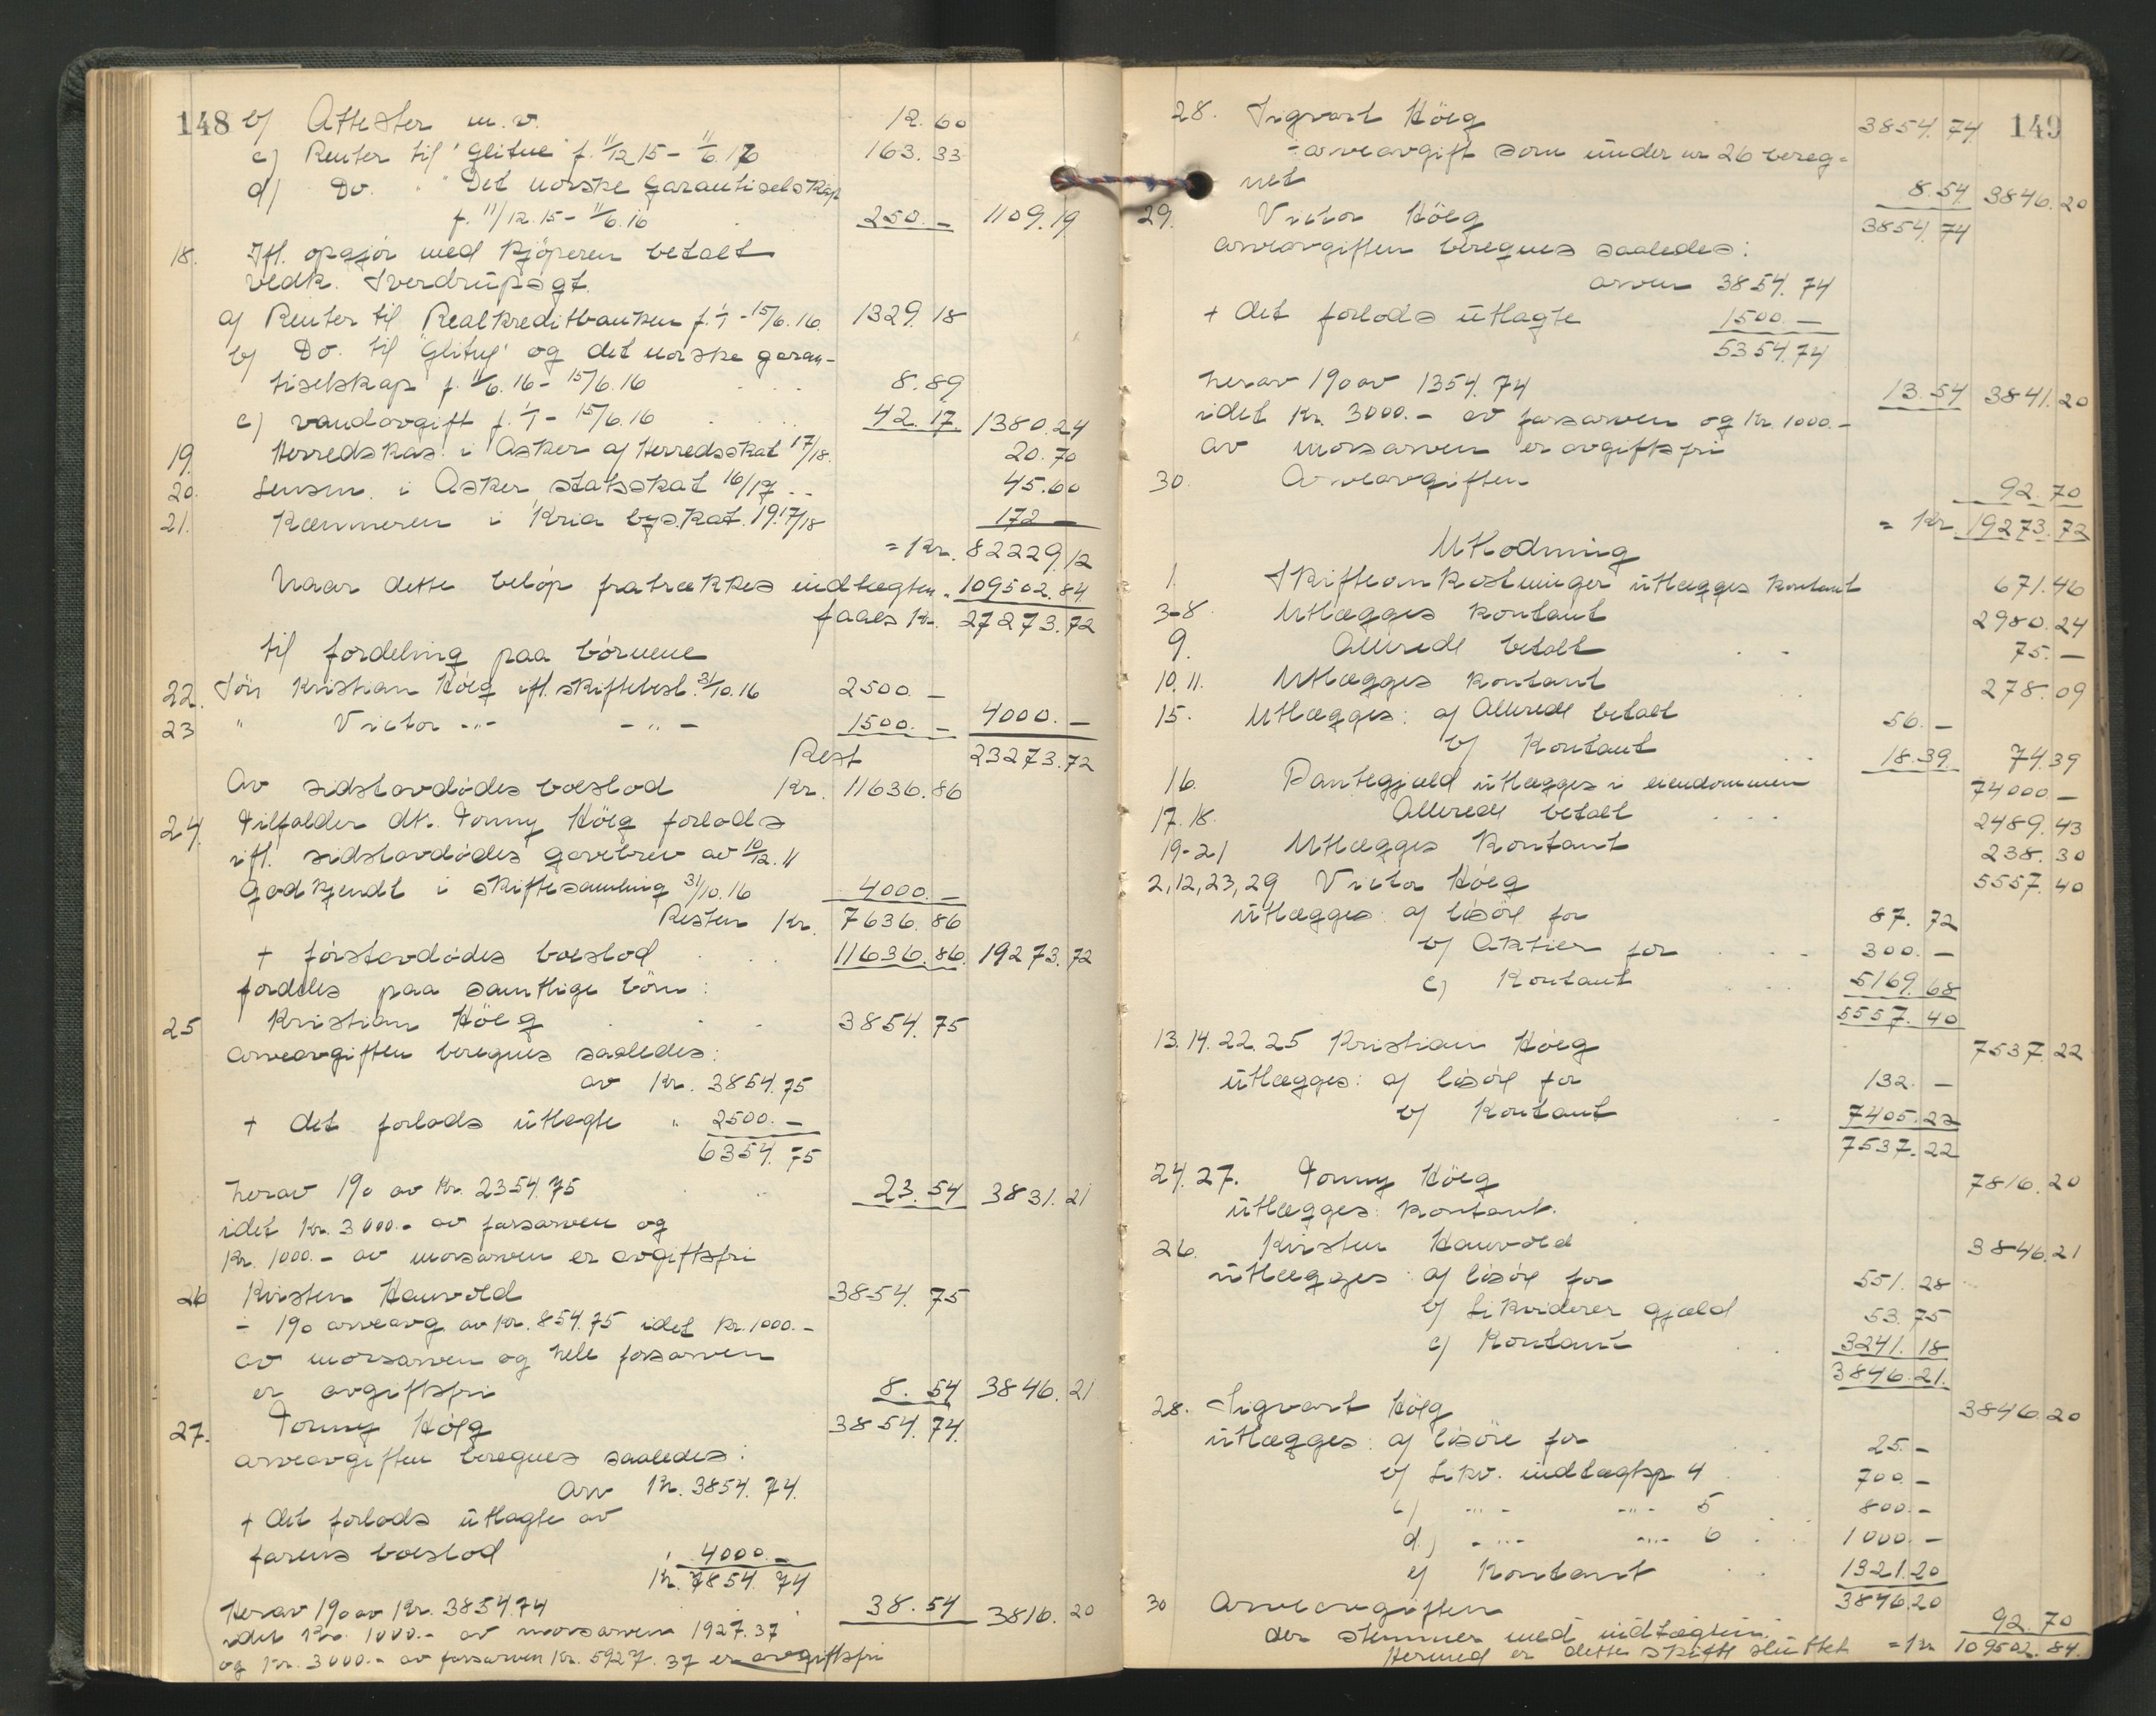 148 b) Attester m.v. 12.60
c) Renter til "Glitne" f. 11/12 15 – 11/6.16 163.33
d) Do. " "Det norske garantiselskap
f. 11/12.15 – 11/6.16 250.— 1109.19
18. Ifl. opgjör med kjöperen betalt
vedk. Sverdrupsgt.
a) Renter til Realkreditbanken f. 1/1 – 15/6.16. 1329.18
b) Do. til "Glitne" og det norske garan-
tiselskap f. 11/6.16 – 15/6.16 8.89
c) vandavgift f. 1/1 – 15/6.16 42.17. 1380.24
19. Herredskas. i Asker af Herredsskat 17/18. 20.70
20. Lensm. i Asker statsskat 16/17 .. 45.60
21. Kæmneren i Kria byskat. 19.17/18 172 —
= Kr. 82229.12
Naar dette belöp fratrækkes indtægten " 109502.84
faaes Kr. 27273.72
til fordeling paa börnene
22. Sön Kristian Höeg ifl. skiftebesl. 31/10.16 2500.—
23 " Victor -"- -"- 1500.— 4000.—
Rest 23273.72
Av sidstavdödes boeslod Kr. 11636.86
24. Tilfalder dtr. Tonny Höeg forlods
ifl. sidstavdödes gavebrev av 10/12.11
godkjendt i skiftesamling 31/10.16 4000.—
Resten Kr. 7636.86
+ förstavdödes boeslod 11636.86. 19273.72
fordeles paa samtlige börn:
25 Kristian Höeg 3854.75
arveavgiften beregnes saaledes:
av Kr. 3854.75
+ det forlods utlagte " 2500.—
6354.75
herav 1% av Kr. 2354.75 23.54 3831.21
idet Kr. 3000.- av farsarven og
Kr. 1000.- av morsarven er avgiftsfri
26 Kirsten Hauvold 3854.75
- 1% arveavg. av Kr. 854.75 idet Kr. 1000.-
av morsarven og hele farsarven
er avgiftsfri 8.54 3846.21
27. Tonny Höeg 3854.74.
arveavgiften beregnes saaledes:
Arv Kr. 3854.74.
+ det forlods utlagte av
farens boeslod " 4000.—
Kr. 7854.74
Herav 1% av Kr. 3854.74 38.54 3816.20
idet Kr. 1000.- av morsarven 1927.37
og Kr. 3000.- av farsarven Kr. 5927.37 er avgiftsfri
28. Sigvart Höeg 3854.74 149
÷ arveavgift som under nr 26 bereg-
net 8.54 3846.20
29. Victor Höeg 3854.74
arveavgiften beregnes saaledes:
arven 3854.74
+ det forlods utlagte 1500.—
5354.74
herav 1% av 1354.74 13.54 3841.20
idet Kr. 3000.- av farsarven og Kr. 1000.-
av morsarven er avgiftsfri
30 Arveavgiften 92.70
= Kr 19273.72
Utlodning
1. Skifteomkostninger utlægges kontant 671.46
3-8. Utlægges kontant 2980.24
9. Allerede betalt 75.—
10.11. Utlægges kontant 278.09
15. Utlægges: a) Allerede betalt 56.—
b) Kontant 18.39. 74.39
16. Pantegjæld utlægges i eiendommen 74000.—
17.18. Allerede betalt 2489.43
19-21 Utlægges kontant 238.30
2,12,23,29 Victor Höeg 5557.40
utlægges: a) lösöre for 87.72
b) Aktier for 300.—
c) Kontant 5169.68
5557.40
13.14.22.25 Kristian Höeg 7537.22
utlægges: a) lösöre for 132.—
b) Kontant 7405.22
7537.22
24.27. Tonny Höeg 7816.20
utlægges: kontant.
26. Kirsten Hauvold 3846.21
utlægges: a) lösöre for 551.28
b) Likviderer gjæld 53.75
c) Kontant 3241.18
3846.21.
28. Sigvart Höeg 3846.20
utlægges: a) lösöre for 25.—
b) Likv. indtægtsp. 4 700.—
c) -"- -"- 5 800.—
d) -"- -"- 6 1000.—
e) Kontant 1321.20
3846.20
30 Arveavgiften 92.70
der stemmer med indtægten.
Hermed er dette skifte sluttet = Kr 109502.84.